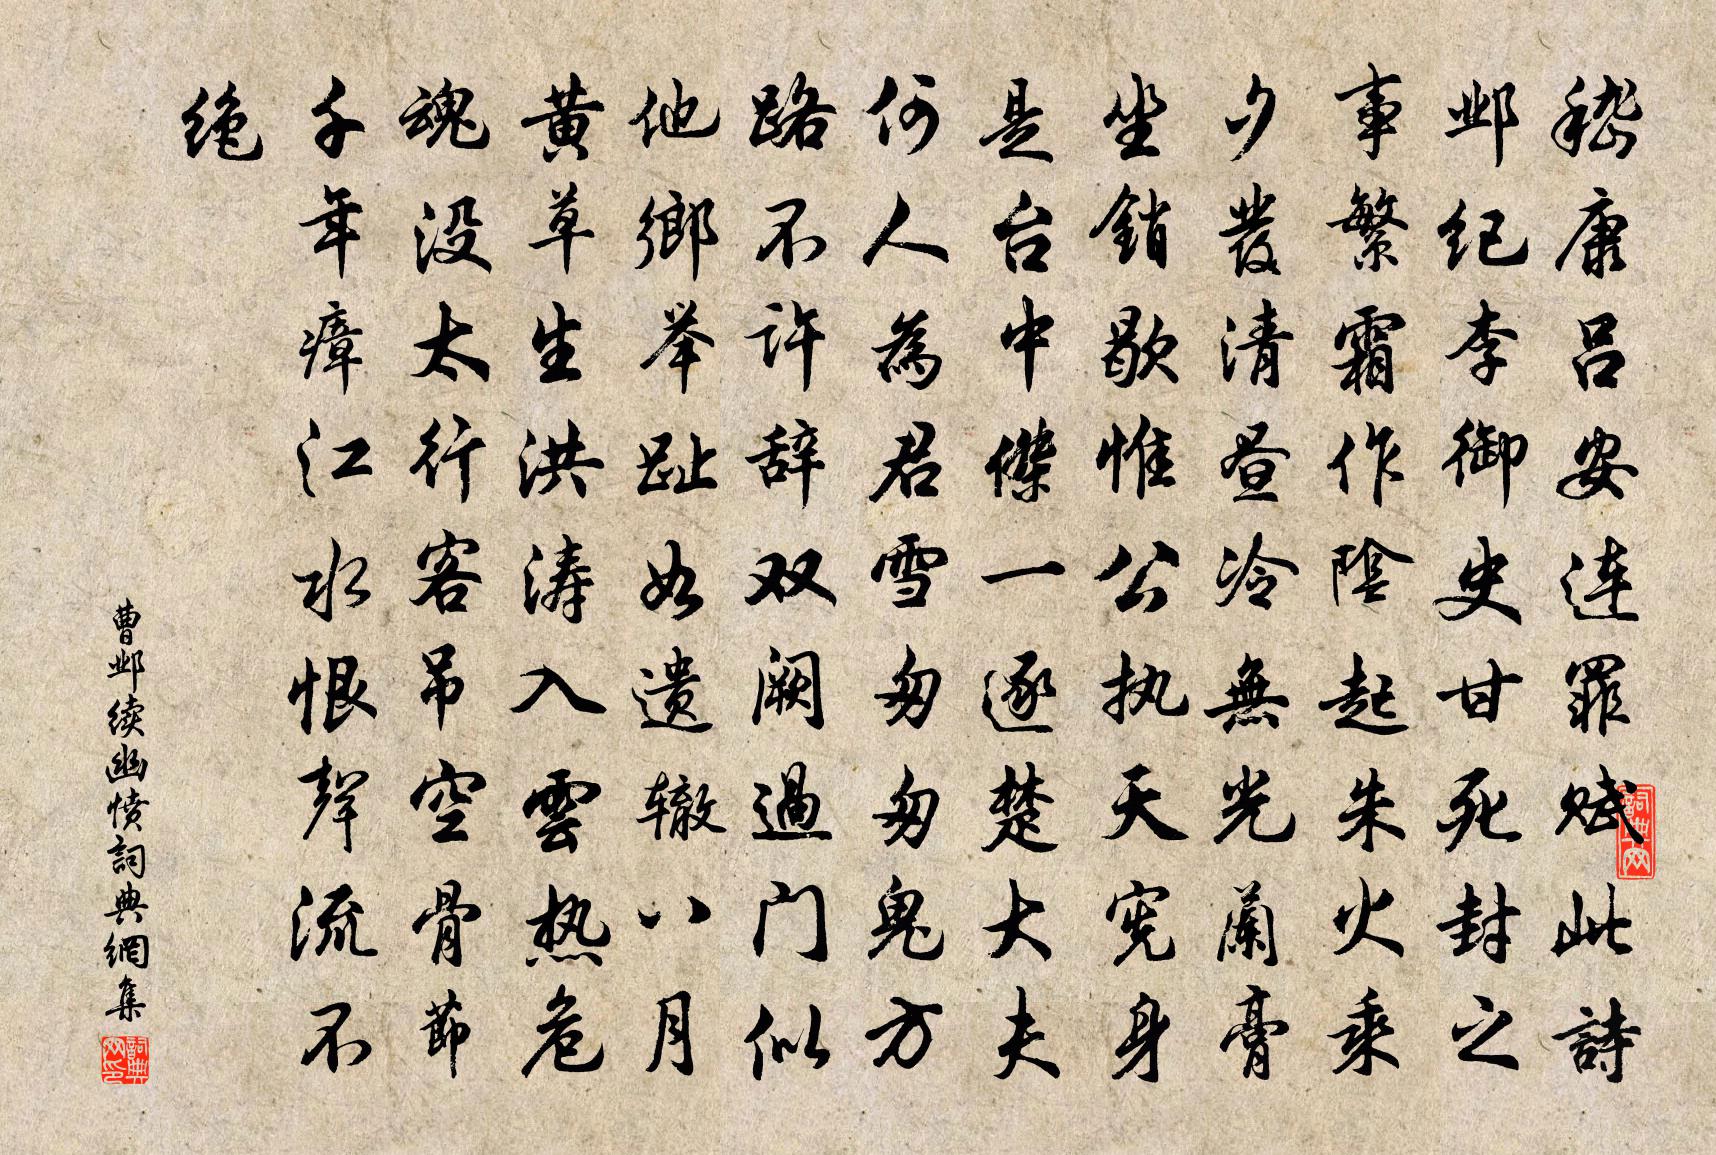 嵇康吕安連罪赋此詩
邺纪李御史甘死封之
事繁霜作陰起朱火乘
夕發清昼冷無光蘭膏
坐銷歇惟公执天宪身
是台中傑一逐楚大夫
何人為君雪匆匆鬼方
路不许辞双阙過门似
他鄉举趾如遗辙八月
黄草生洪涛入雲热危
魂没太行客吊空骨節
千年瘴江水恨聲流不
绝
曹邺续幽愤詞典網集
詞典网
詞典网印